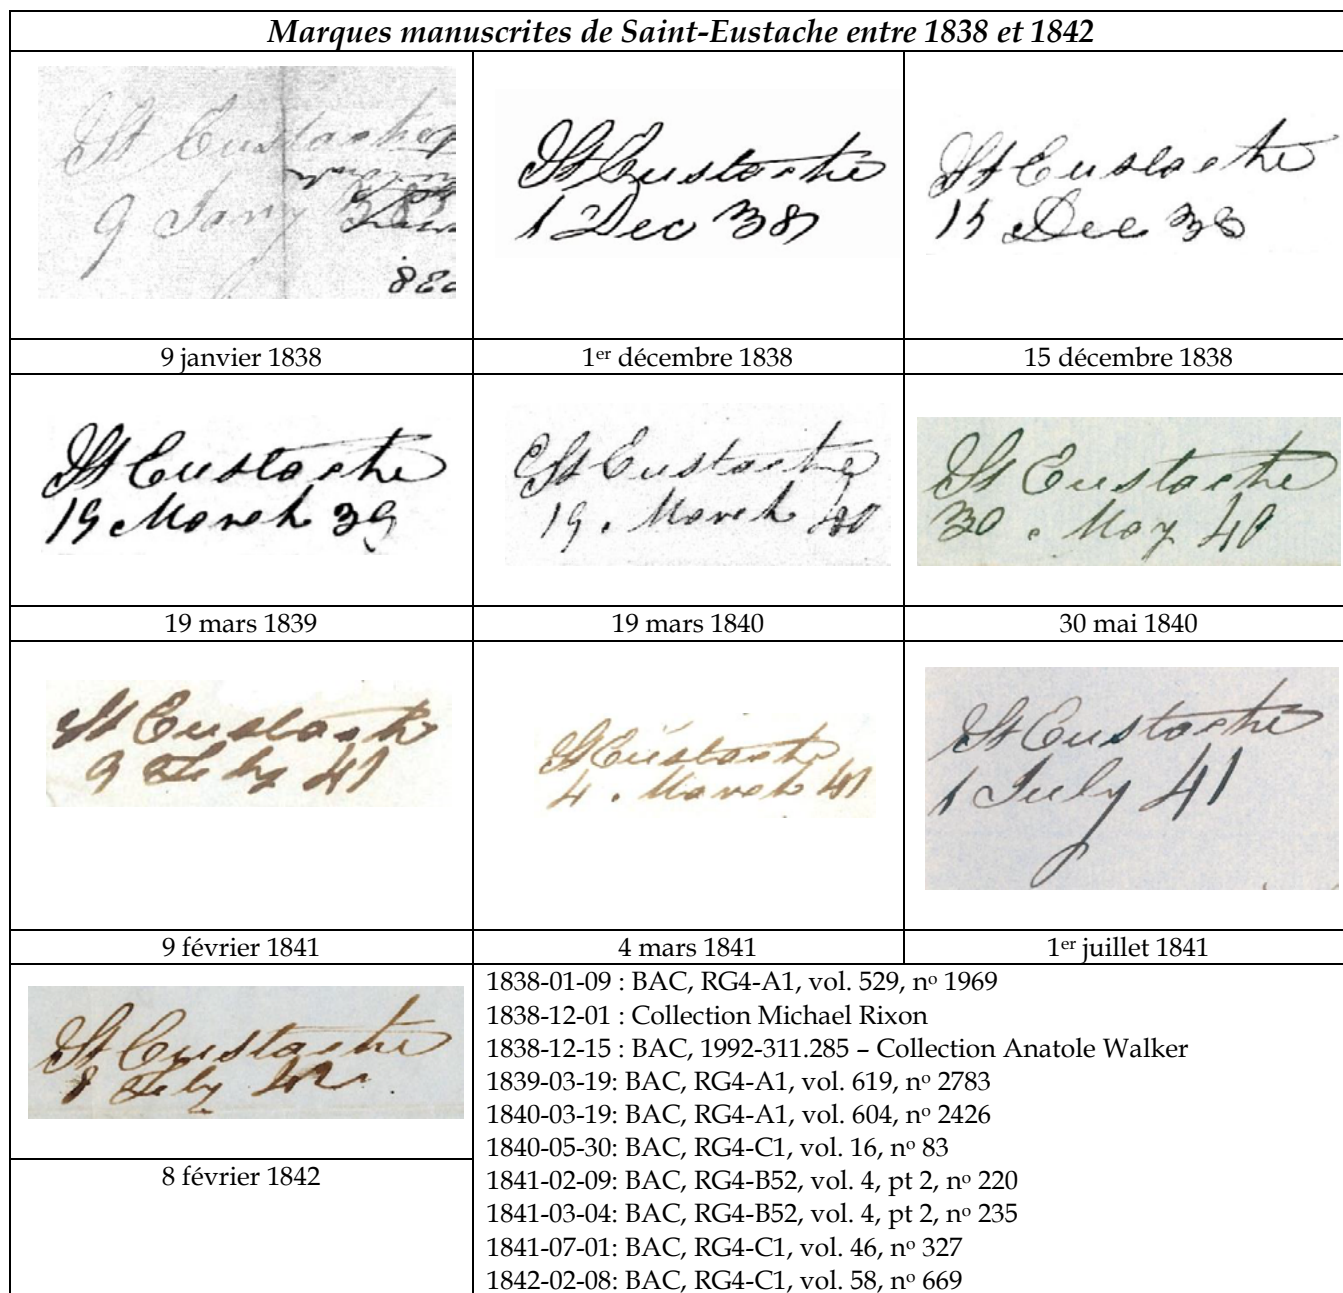 Marques manuscrites de Saint-Eustache entre 1838 et 1842
St Eustache
9 Jany 38
St Eustache
1 Dec 38
St Eustache
15 Dec 38
9 janvier 1838
1er décembre 1838
15 décembre 1838
St Eustache
19 March 39
St Eustache
19. March 40
St Eustache
30. May 40
19 mars 1839
19 mars 1840
30 mai 1840
St Eustache
9 Feby 41
St Eustache
4. March 41
St Eustache
1 July 41
9 février 1841
4 mars 1841
1er juillet 1841
St Eustache
8 Feby 42.
8 février 1842
1838-01-09 : BAC, RG4-A1, vol. 529, no 1969
1838-12-01 : Collection Michael Rixon
1838-12-15 : BAC, 1992-311.285 – Collection Anatole Walker
1839-03-19: BAC, RG4-A1, vol. 619, no 2783
1840-03-19: BAC, RG4-A1, vol. 604, no 2426
1840-05-30: BAC, RG4-C1, vol. 16, no 83
1841-02-09: BAC, RG4-B52, vol. 4, pt 2, no 220
1841-03-04: BAC, RG4-B52, vol. 4, pt 2, no 235
1841-07-01: BAC, RG4-C1, vol. 46, no 327
1842-02-08: BAC, RG4-C1, vol. 58, no 669